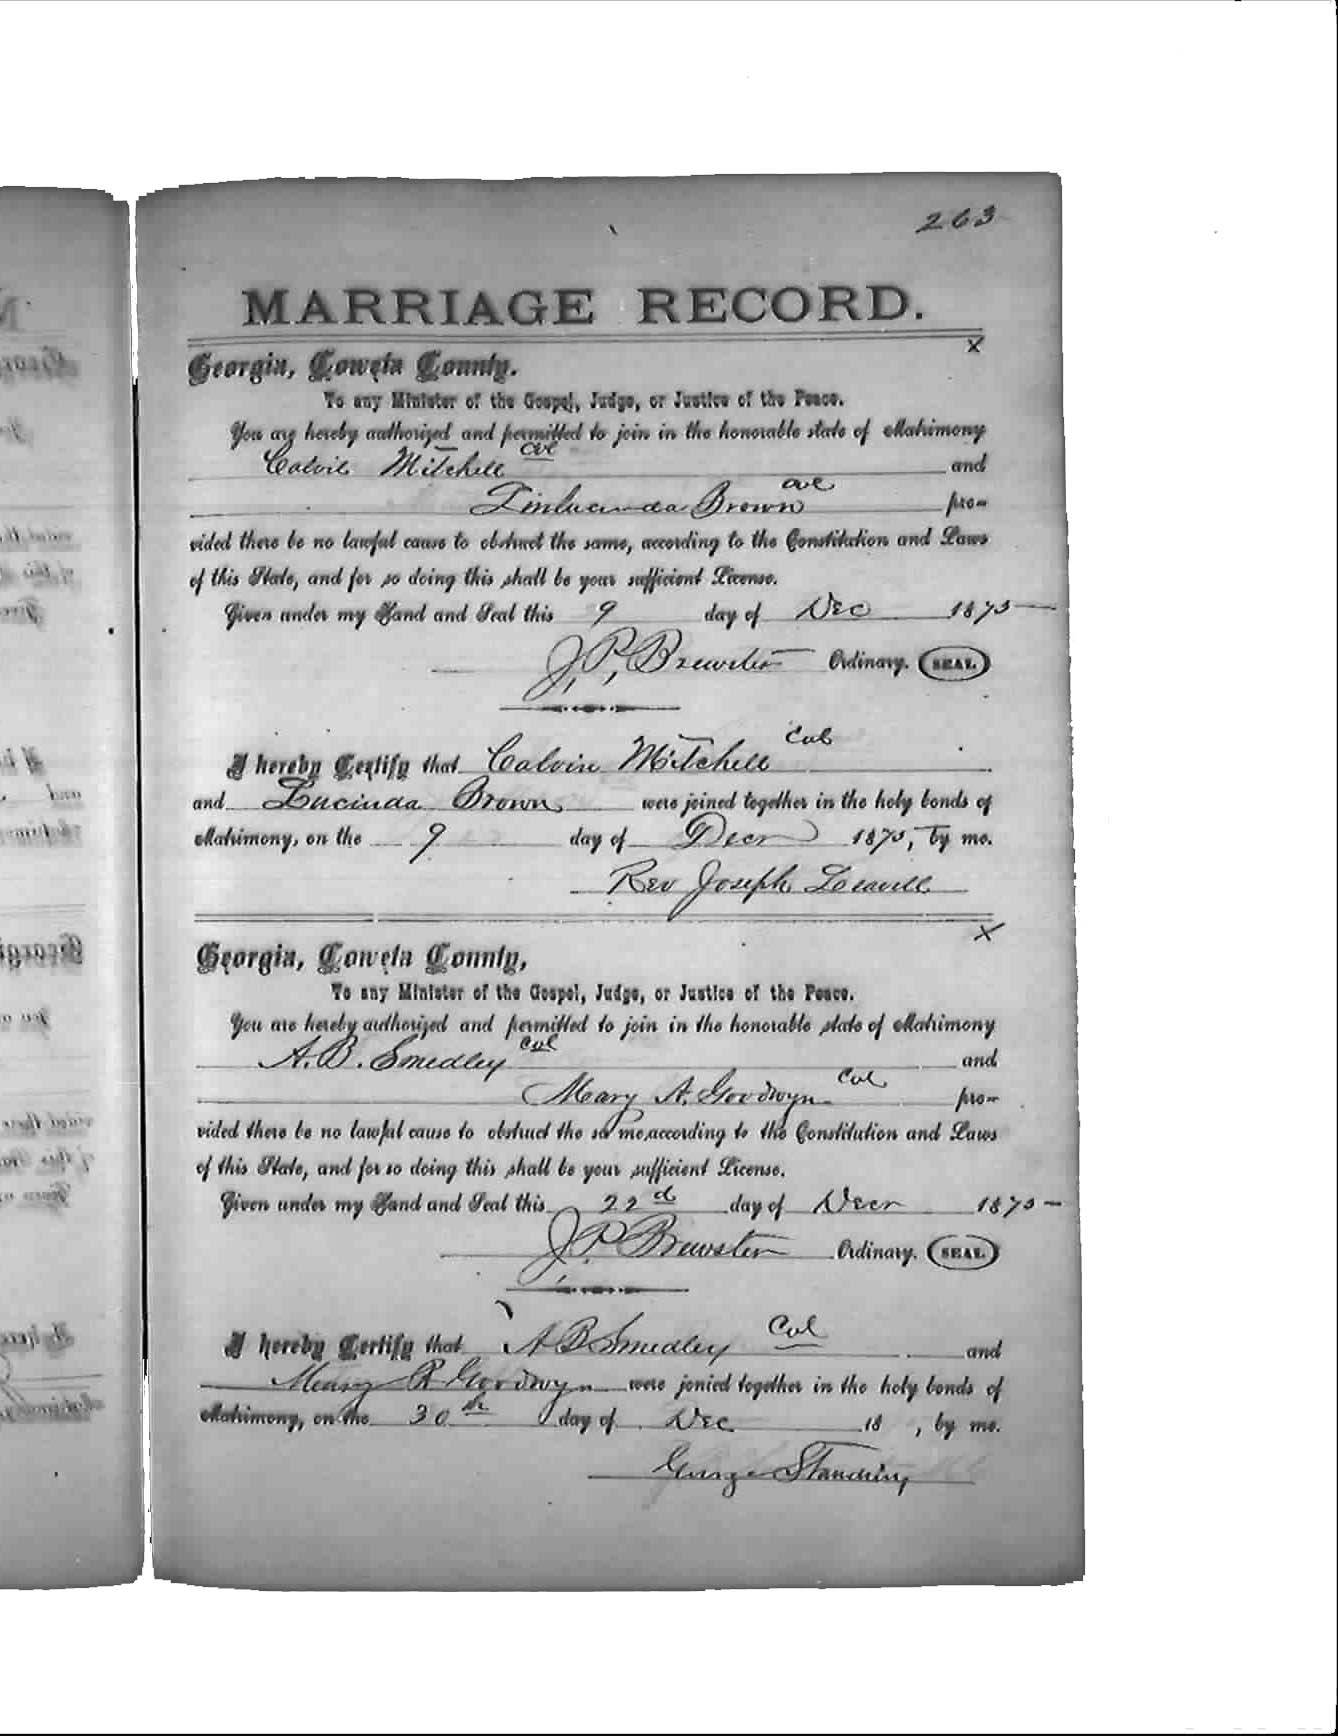 263
MARRIAGE RECORD.
x
Georgia, Coweta County.
To any Minister of the Gospel, Judge, or Justice of the Peace.
You are hereby authorized and permitted to join in the honorable state of Matrimony
Calvil Mitchell Col and
Brown Col pro-
vided there be no lawful cause to obstruct the same, according to the Constitution and Laws
of this State, and for so doing this shall be your sufficient License.
Given under my Hand and Seal this 9 day of Dec 1875
J. P. Brewster Ordinary. SEAL.
I hereby Certify that Calvin Mitchell Col
and Lucinda Brown were joined together in the holy bonds of
Matrimony, on the 9 day of Decr 1875, by me.
Rev Joseph
x
Georgia, Coweta County,
To any Minister of the Gospel, Judge, or Justice of the Peace.
You are hereby authorized and permitted to join in the honorable state of Matrimony
A. B. Smedley Col and
Mary A. Goodwyn Col pro-
vided there be no lawful cause to obstruct the sa me, according to the Constitution and Laws
of this State, and for so doing this shall be your sufficient License.
Given under my Hand and Seal this 22d day of Decr 1875
J. P. Brewster Ordinary. SEAL.
I hereby Certify that A B Smedley Col and
Mary R Goodwyn were jonied together in the holy bonds of
Matrimony, on the 30th day of Dec 18 , by me.
George Standing